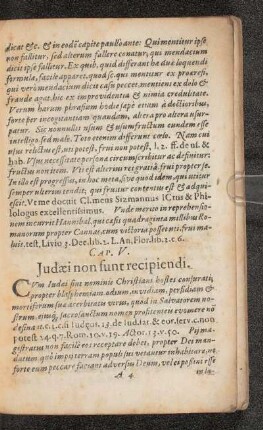 dicat &c. & in eodē capite paulò ante: Qui mentitur ipse
non fallitur, sed alterum fallere conatur, qui mendacium
dicit ipse fallitur. Ex quib. quid differant hæ duæ loquendi
formulæ, facile apparet, quod sc. qui mentitur ex proæresi,
qui verò mendacium dicit casu peccet, mentiens ex dolo &
fraude agat, hic ex imprudentia & nimia credulitate.
Verum harum phrasium hodie sæpè etiam à doctioribus,
forte per incogitantiam quandam, altera pro altera usur-
patur. Sic nonnulli usum & usumfructum eundem esse
nescio sed malè. Toto etenim differunt cœlo. Nam cui
usus relictus est, uti potest, frui non potest, l. 2. ff. de us. &
hab. Usus necessitate personæ circumscribitur ac definitur;
fructus non item. Uti est alterius gratiâ, frui propter se.
In illo est progressus, in hoc meta. Quare idem qui utitur
semper ulterius tendit, qui fruitur contentus est & adqui-
escit. Ut me docuit Clemens Sizmannus ICtus & Phi-
lologus excellentissimus. Unde merito in reprehensio-
nem incurrit Hannibal, qui cæsis quadraginta millibus Ro-
manorum propter Cannas, cum victoriâ posset uti, frui ma-
luit. test. Livio 3. Dec. lib. 2. L. An. Flor. lib. 2. c. 6.
CAP. V.
Judæi non sunt recipiendi.
CUm Iudæi sint nominis Christiani hostes conjurati,
propter blasphemiam, odium, invidiam, perfidiam &
mortiferum suæ acerbitatis virus, quod in Salvatorem no-
strum, eiusq́; sacrosanctum nomen profitentes evomere nō
desinunt.
magi-
stratus non facilè eos receptare debet, propter Dei man-
datum
forte eum peccare faciant adversus Deum, vel ei posius esse
A 4